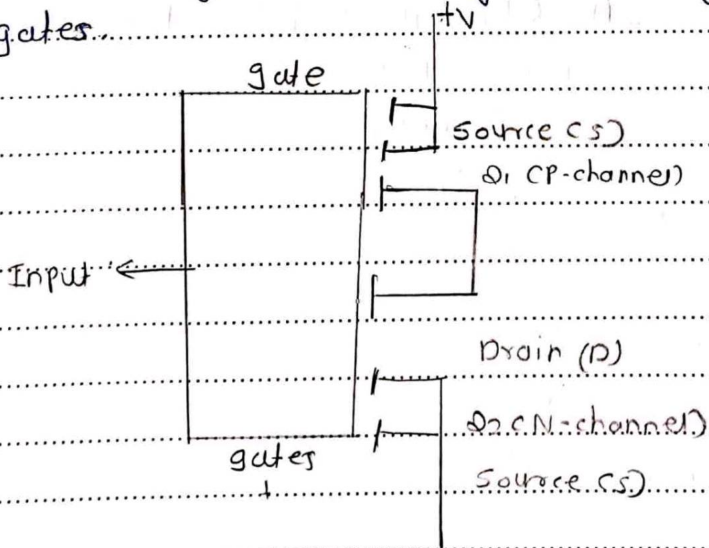 gates.
+V
gate
Source (S)
Q1 (P-channel)
Input
Drain (D)
Q2 (N-channel)
gates
Source (S)